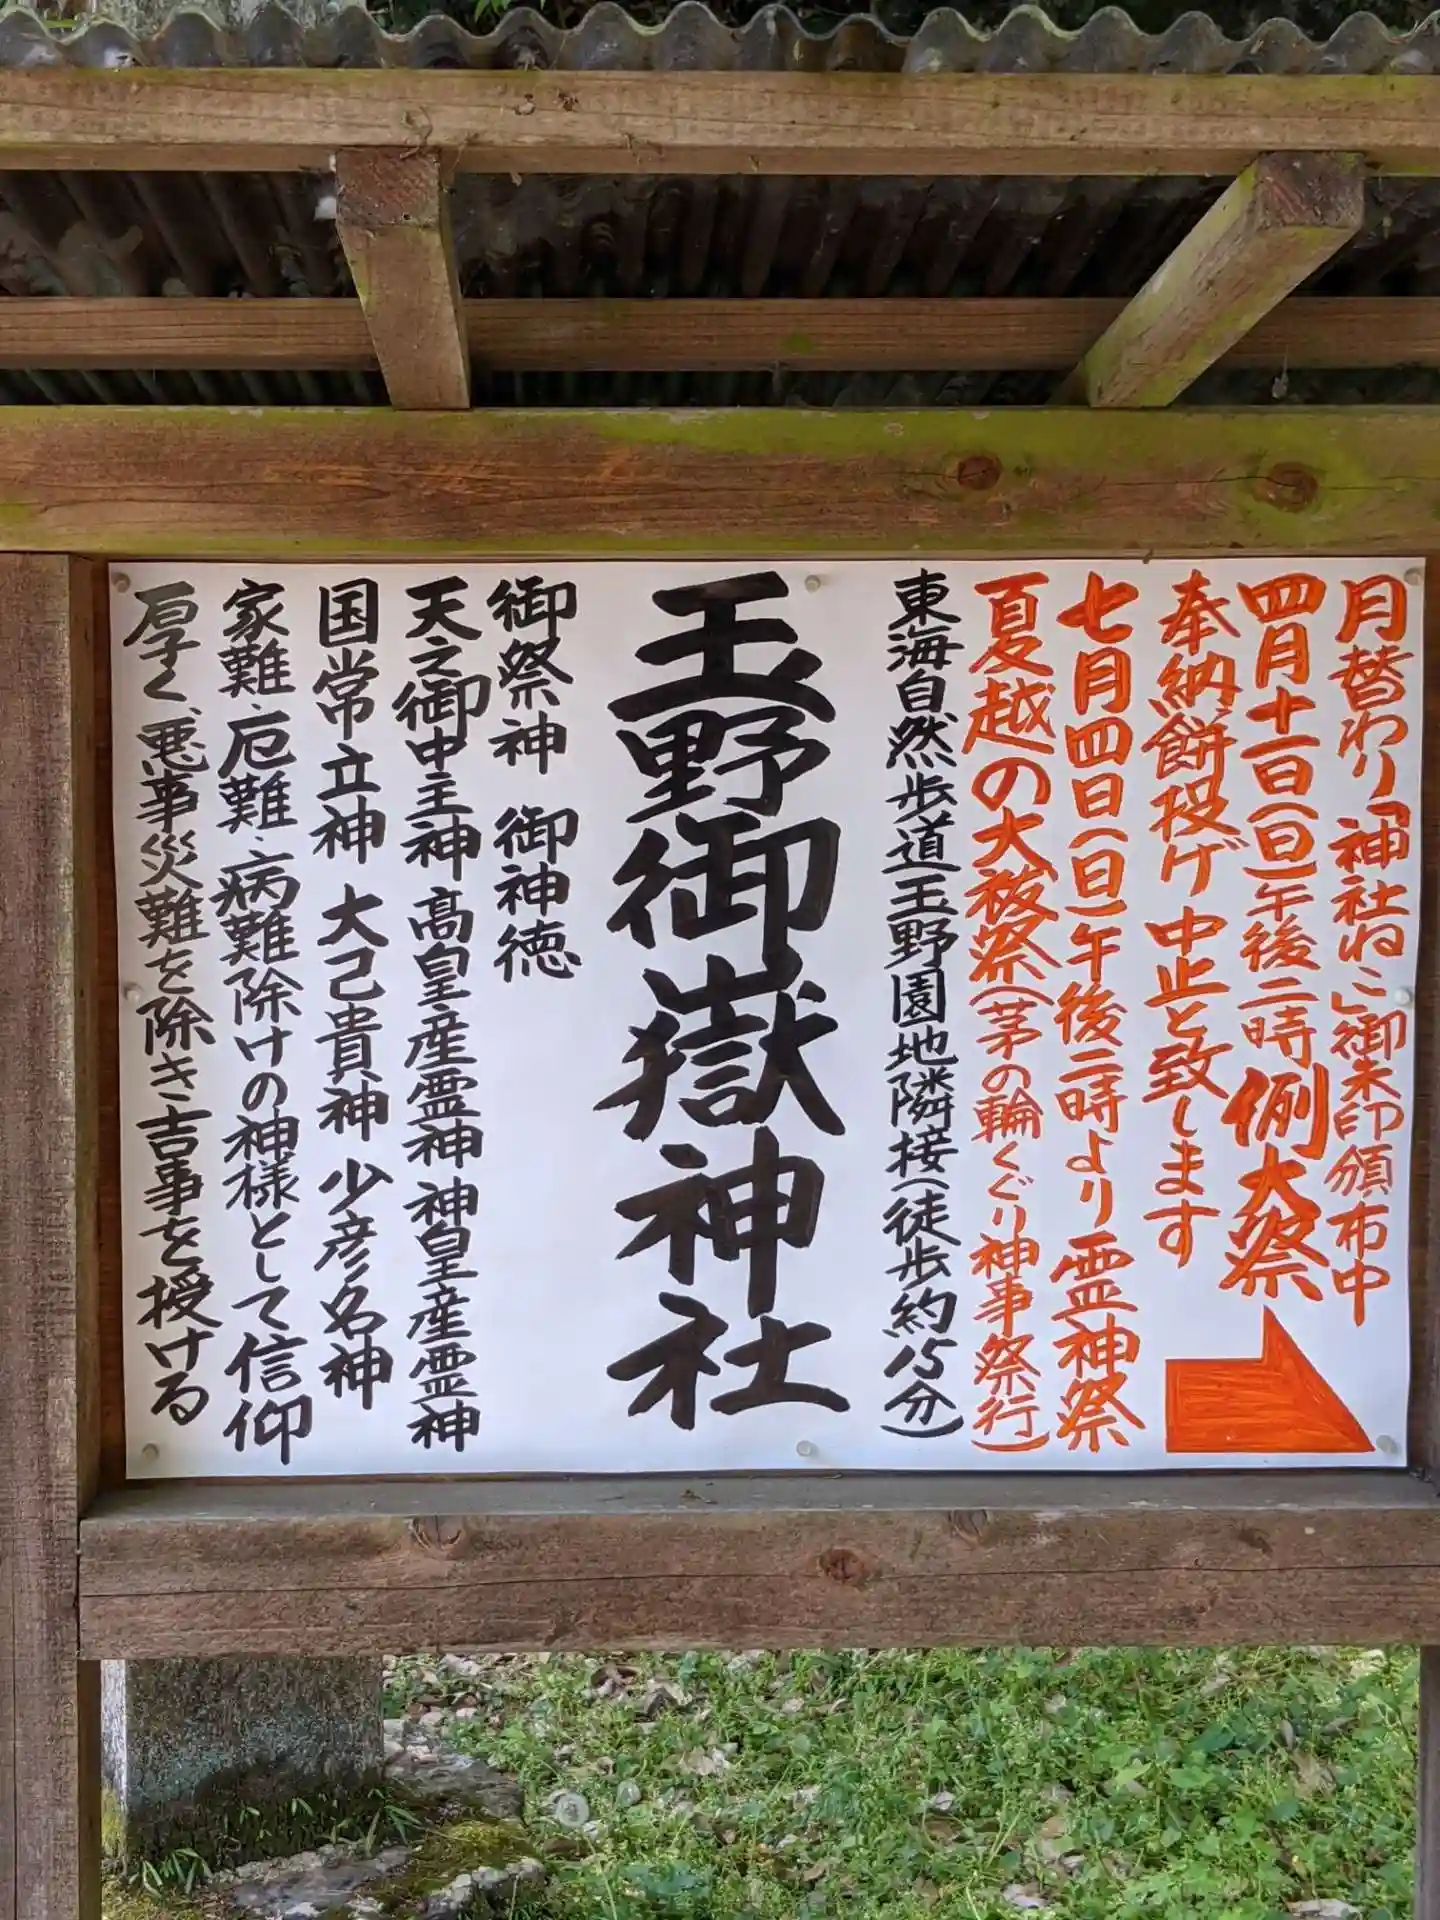 月替わり「神社ねこ」御朱印頒布中
四月十一日(日)午後二時 例大祭
奉納餅投げ 中止と致します
七月四日(日)午後二時より 霊神祭
夏越の大祓祭(茅の輪くぐり神事祭行)
東海自然歩道玉野園地隣接(徒歩約15分)
玉野御嶽神社
御祭神 御神徳
天之御中主神 高皇産霊神 神皇産霊神
国常立神 大己貴神 少彦名神
家難・厄難・病難除けの神様として信仰
厚く、悪事災難を除き吉事を授ける